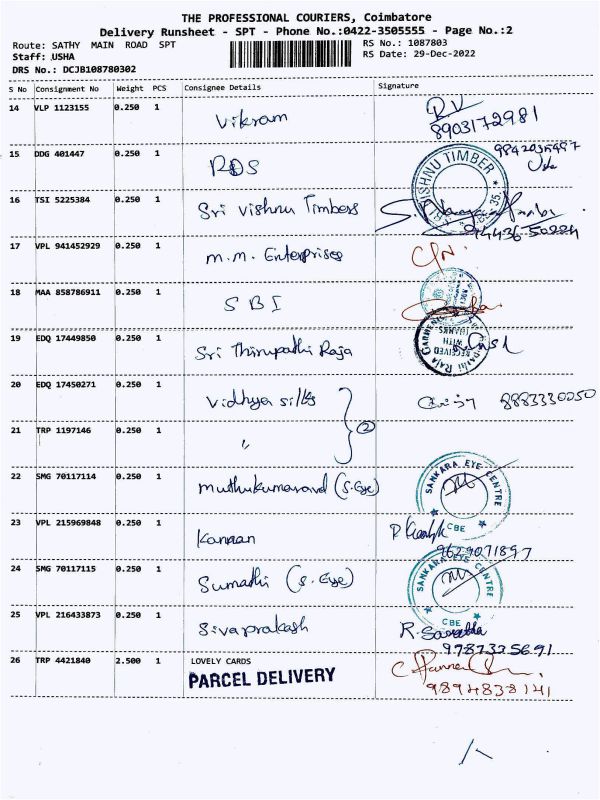 THE PROFESSIONAL COURIERS, Coimbatore
Delivery Runsheet - SPT - Phone No.:0422-3505555 - Page No.:2
Route: SATHY MAIN ROAD SPT
RS No.: 1087803
Staff: USHA
RS Date: 29-Dec-2022
DRS No.: DCJB108780302
S No Consignment No Weight PCS Consignee Details Signature
14 VLP 1123155 0.250 1 Vikram RV
8903172981
15 DDG 401447 0.250 1 RDS
16 TSI 5225384 0.250 1 Sri Vishnu Timbers
VISHNU TIMBER
17 VPL 941452929 0.250 1 M.M. Enterprises
18 MAA 858786911 0.250 1 SBI
19 EDQ 17449850 0.250 1 Sri Thirupathi Raja
RECEIVED WITH THANKS
20 EDQ 17450271 0.250 1 Vidhya silks 8883330050
21 TRP 1197146 0.250 1 " 2
22 SMG 70117114 0.250 1 (S.Eye)
SANKARA EYE CENTRE CBE
23 VPL 215969848 0.250 1 Kannan
9629071897
24 SMG 70117115 0.250 1 Sumathi (S.Eye)
SANKARA EYE CENTRE CBE
25 VPL 216433873 0.250 1 Sivaprakash R.
9787325691
26 TRP 4421840 2.500 1 LOVELY CARDS
PARCEL DELIVERY
9894838141